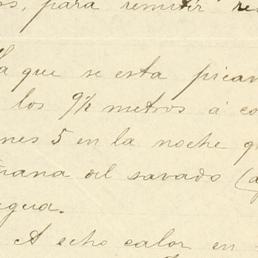 os, para remitir re
Ya que se esta pican
los 9½ metros á co
nes 5 en la noche q
ñana del savado (a
egua.
A echo calor en